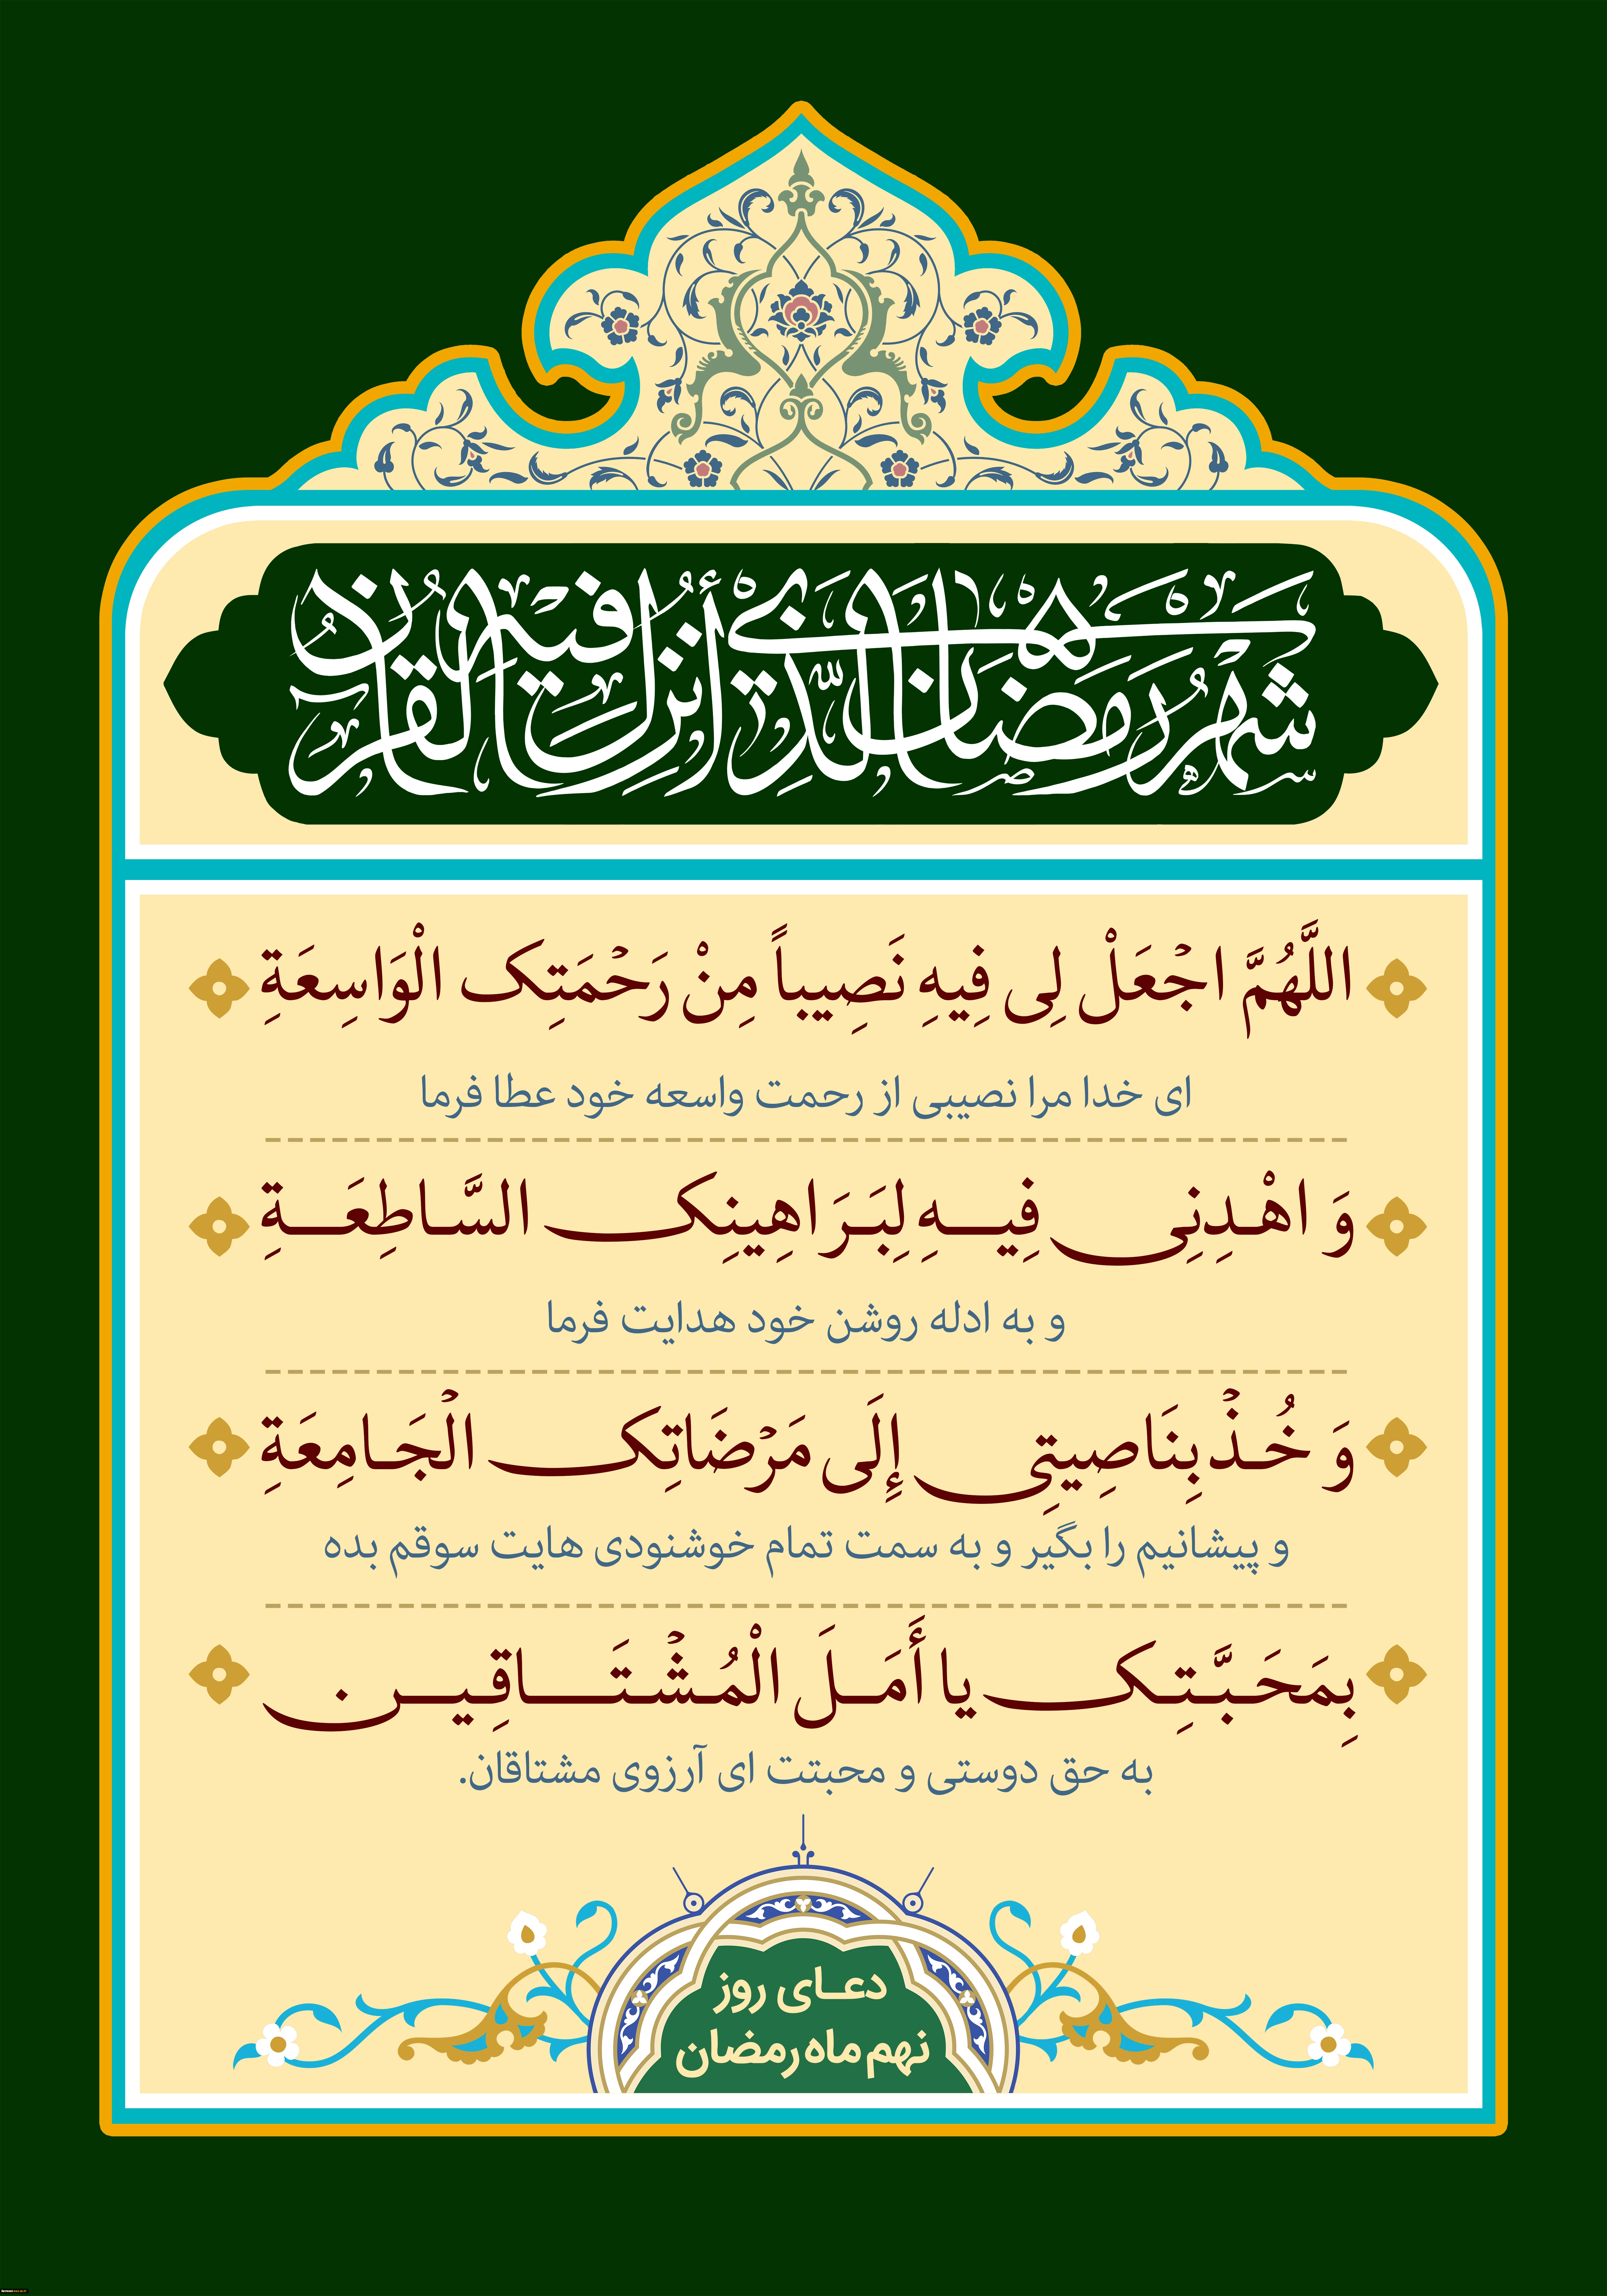 شَهْرُ رَمَضَانَ الَّذِي أُنْزِلَ فِيهِ الْقُرْآنُ
اللَّهُمَّ اجْعَلْ لِی فِیهِ نَصِیباً مِنْ رَحْمَتِک الْوَاسِعَةِ
ای خدا مرا نصیبی از رحمت واسعه خود عطا فرما
وَ اهْدِنِی فِیهِ لِبَرَاهِینِک السَّاطِعَةِ
و به ادله روشن خود هدایت فرما
وَ خُذْ بِنَاصِیتِی إِلَی مَرْضَاتِک الْجَامِعَةِ
و پیشانیم را بگیر و به سمت تمام خوشنودی هایت سوقم بده
بِمَحَبَّتِک یا أَمَلَ الْمُشْتَاقِین
به حق دوستی و محبتت ای آرزوی مشتاقان.
دعای روز
نهم ماه رمضان